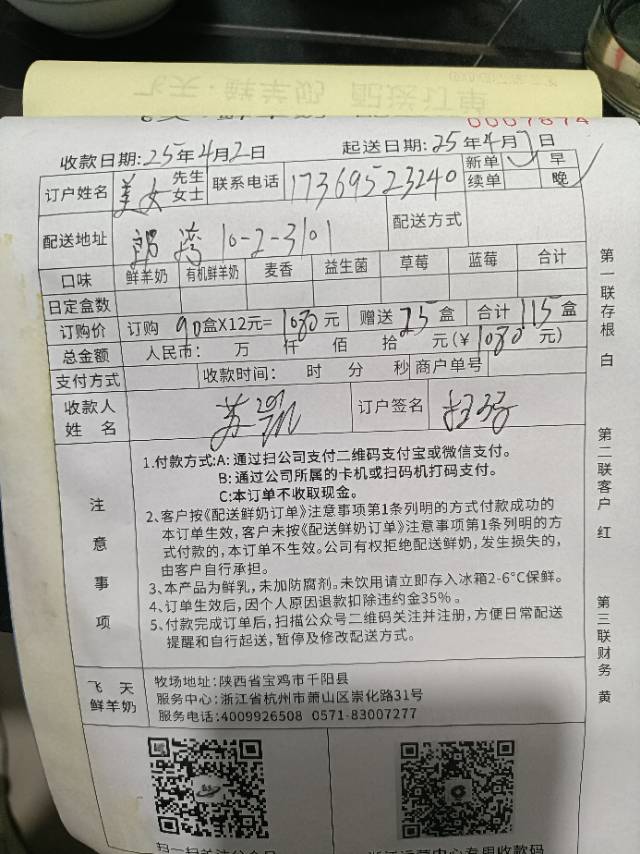 飞天·鲜羊奶 配送订单
0007874
收款日期:25年4月2日 起送日期:25年4月7日
订户姓名 美女 先生 女士 联系电话 17369523240 新单 早
续单 晚
配送地址 10-2-3101 配送方式
口味 鲜羊奶 有机鲜羊奶 麦香 益生菌 草莓 蓝莓 合计
日定盒数
订购价 订购 90盒X12元=1080元 赠送25盒 合计115盒
总金额 人民币: 万 仟 佰 拾 元(¥1080.元)
支付方式 收款时间: 时 分 秒 商户单号
收款人 姓名 苏凯 201 订户签名
注意事项
1.付款方式:A:通过扫公司支付二维码支付宝或微信支付。
B:通过公司所属的卡机或扫码机打码支付。
C:本订单不收取现金。
2、客户按《配送鲜奶订单》注意事项第1条列明的方式付款成功的
本订单生效,客户未按《配送鲜奶订单》注意事项第1条列明的方
式付款的,本订单不生效。公司有权拒绝配送鲜奶,发生损失的,
由客户自行承担。
3、本产品为鲜乳,未加防腐剂。未饮用请立即存入冰箱2-6°C保鲜。
4、订单生效后,因个人原因退款扣除违约金35%。
5、付款完成订单后,扫描公众号二维码关注并注册,方便日常配送
提醒和自行起送,暂停及修改配送方式。
飞天 鲜羊奶
牧场地址:陕西省宝鸡市千阳县
服务中心:浙江省杭州市萧山区崇化路31号
服务电话:4009926508 0571-83007277
扫一扫关注公众号 浙江运营中心专用收款码
第一联存根 白
第二联客户 红
第三联财务 黄